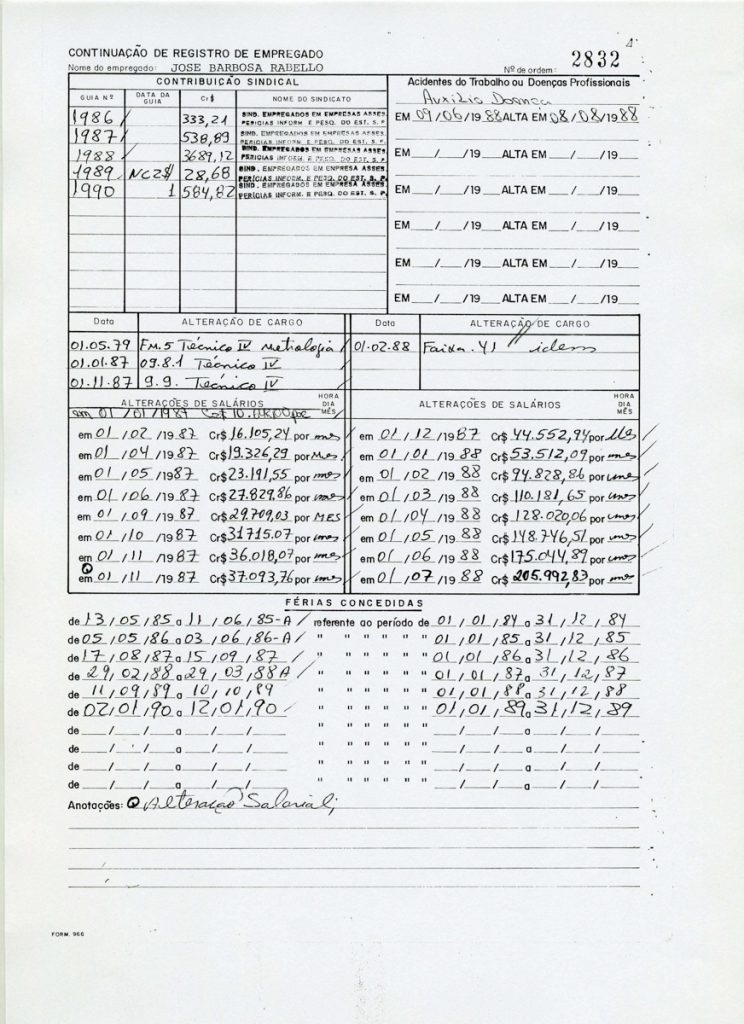 CONTINUAÇÃO DE REGISTRO DE EMPREGADO
Nome do empregado: JOSE BARBOSA RABELLO Nº de ordem: 2832
CONTRIBUIÇÃO SINDICAL
GUIA Nº DATA DA GUIA Cr$ NOME DO SINDICATO
1986 333,21 SIND. EMPREGADOS EM EMPRESAS ASSES. PERICIAS INFORM. E PESQ. DO EST. S. P.
1987 538,89 SIND. EMPREGADOS EM EMPRESAS ASSES. PERICIAS INFORM. E PESQ. DO EST. S. P.
1988 3689,12 SIND. EMPREGADOS EM EMPRESAS ASSES. PERICIAS INFORM. E PESQ. DO EST. S. P.
1989 NCZ$ 28,68 SIND. EMPREGADOS EM EMPRESA ASSES. PERÍCIAS INFORM. E PESQ. DO EST. S. P.
1990 584,82 SIND. EMPREGADOS EM EMPRESA ASSES. PERÍCIAS INFORM. E PESQ. DO EST. S. P.
Acidentes do Trabalho ou Doenças Profissionais
Auxilio Doença
EM 09/06/1988 ALTA EM 08/08/1988
EM / /19 ALTA EM / /19
EM / /19 ALTA EM / /19
EM / /19 ALTA EM / /19
EM / /19 ALTA EM / /19
EM / /19 ALTA EM / /19
Data ALTERAÇÃO DE CARGO Data ALTERAÇÃO DE CARGO
01.05.79 FM.5 Técnico IV Metrologia 01.02.88 Faixa 41 idem
01.01.87 09.8.1 Técnico IV
01.11.87 9.9. Técnico IV
ALTERAÇÕES DE SALÁRIOS HORA DIA MÊS ALTERAÇÕES DE SALÁRIOS HORA DIA MÊS
em 01/01/1987
em 01/02/1987 Cr$ 16.105,24 por mes em 01/12/1987 Cr$ 44.552,94 por Mes
em 01/04/1987 Cr$ 19.326,29 por Mes em 01/01/1988 Cr$ 53.512,09 por mes
em 01/05/1987 Cr$ 23.191,55 por mes em 01/02/1988 Cr$ 94.828,86 por mes
em 01/06/1987 Cr$ 27.829,86 por mes em 01/03/1988 Cr$ 110.181,65 por mes
em 01/09/1987 Cr$ 29.709,03 por MES em 01/04/1988 Cr$ 128.020,06 por mes
em 01/10/1987 Cr$ 31715.07 por mes em 01/05/1988 Cr$ 148.746,51 por mes
em 01/11/1987 Cr$ 36.018,07 por mes em 01/06/1988 Cr$ 175.044,89 por mes
em 01/11/1987 Cr$ 37.093,76 por mes em 01/07/1988 Cr$ 205.992,83 por mes
FÉRIAS CONCEDIDAS
de 13/05/85 a 11/06/85-A referente ao período de 01/01/84 a 31/12/84
de 05/05/86 a 03/06/86-A " " " " " 01/01/85 a 31/12/85
de 17/08/87 a 15/09/87 " " " " " 01/01/86 a 31/12/86
de 29/02/88 a 29/03/88 A " " " " " 01/01/87 a 31/12/87
de 11/09/89 a 10/10/89 " " " " " 01/01/88 a 31/12/88
de 02/01/90 a 12/01/90 " " " " " 01/01/89 a 31/12/89
de / / a / / " " " " " / / a / /
de / / a / / " " " " " / / a / /
de / / a / / " " " " " / / a / /
de / / a / / " " " " " / / a / /
Anotações: Alteração Salarial;
FORM. 966